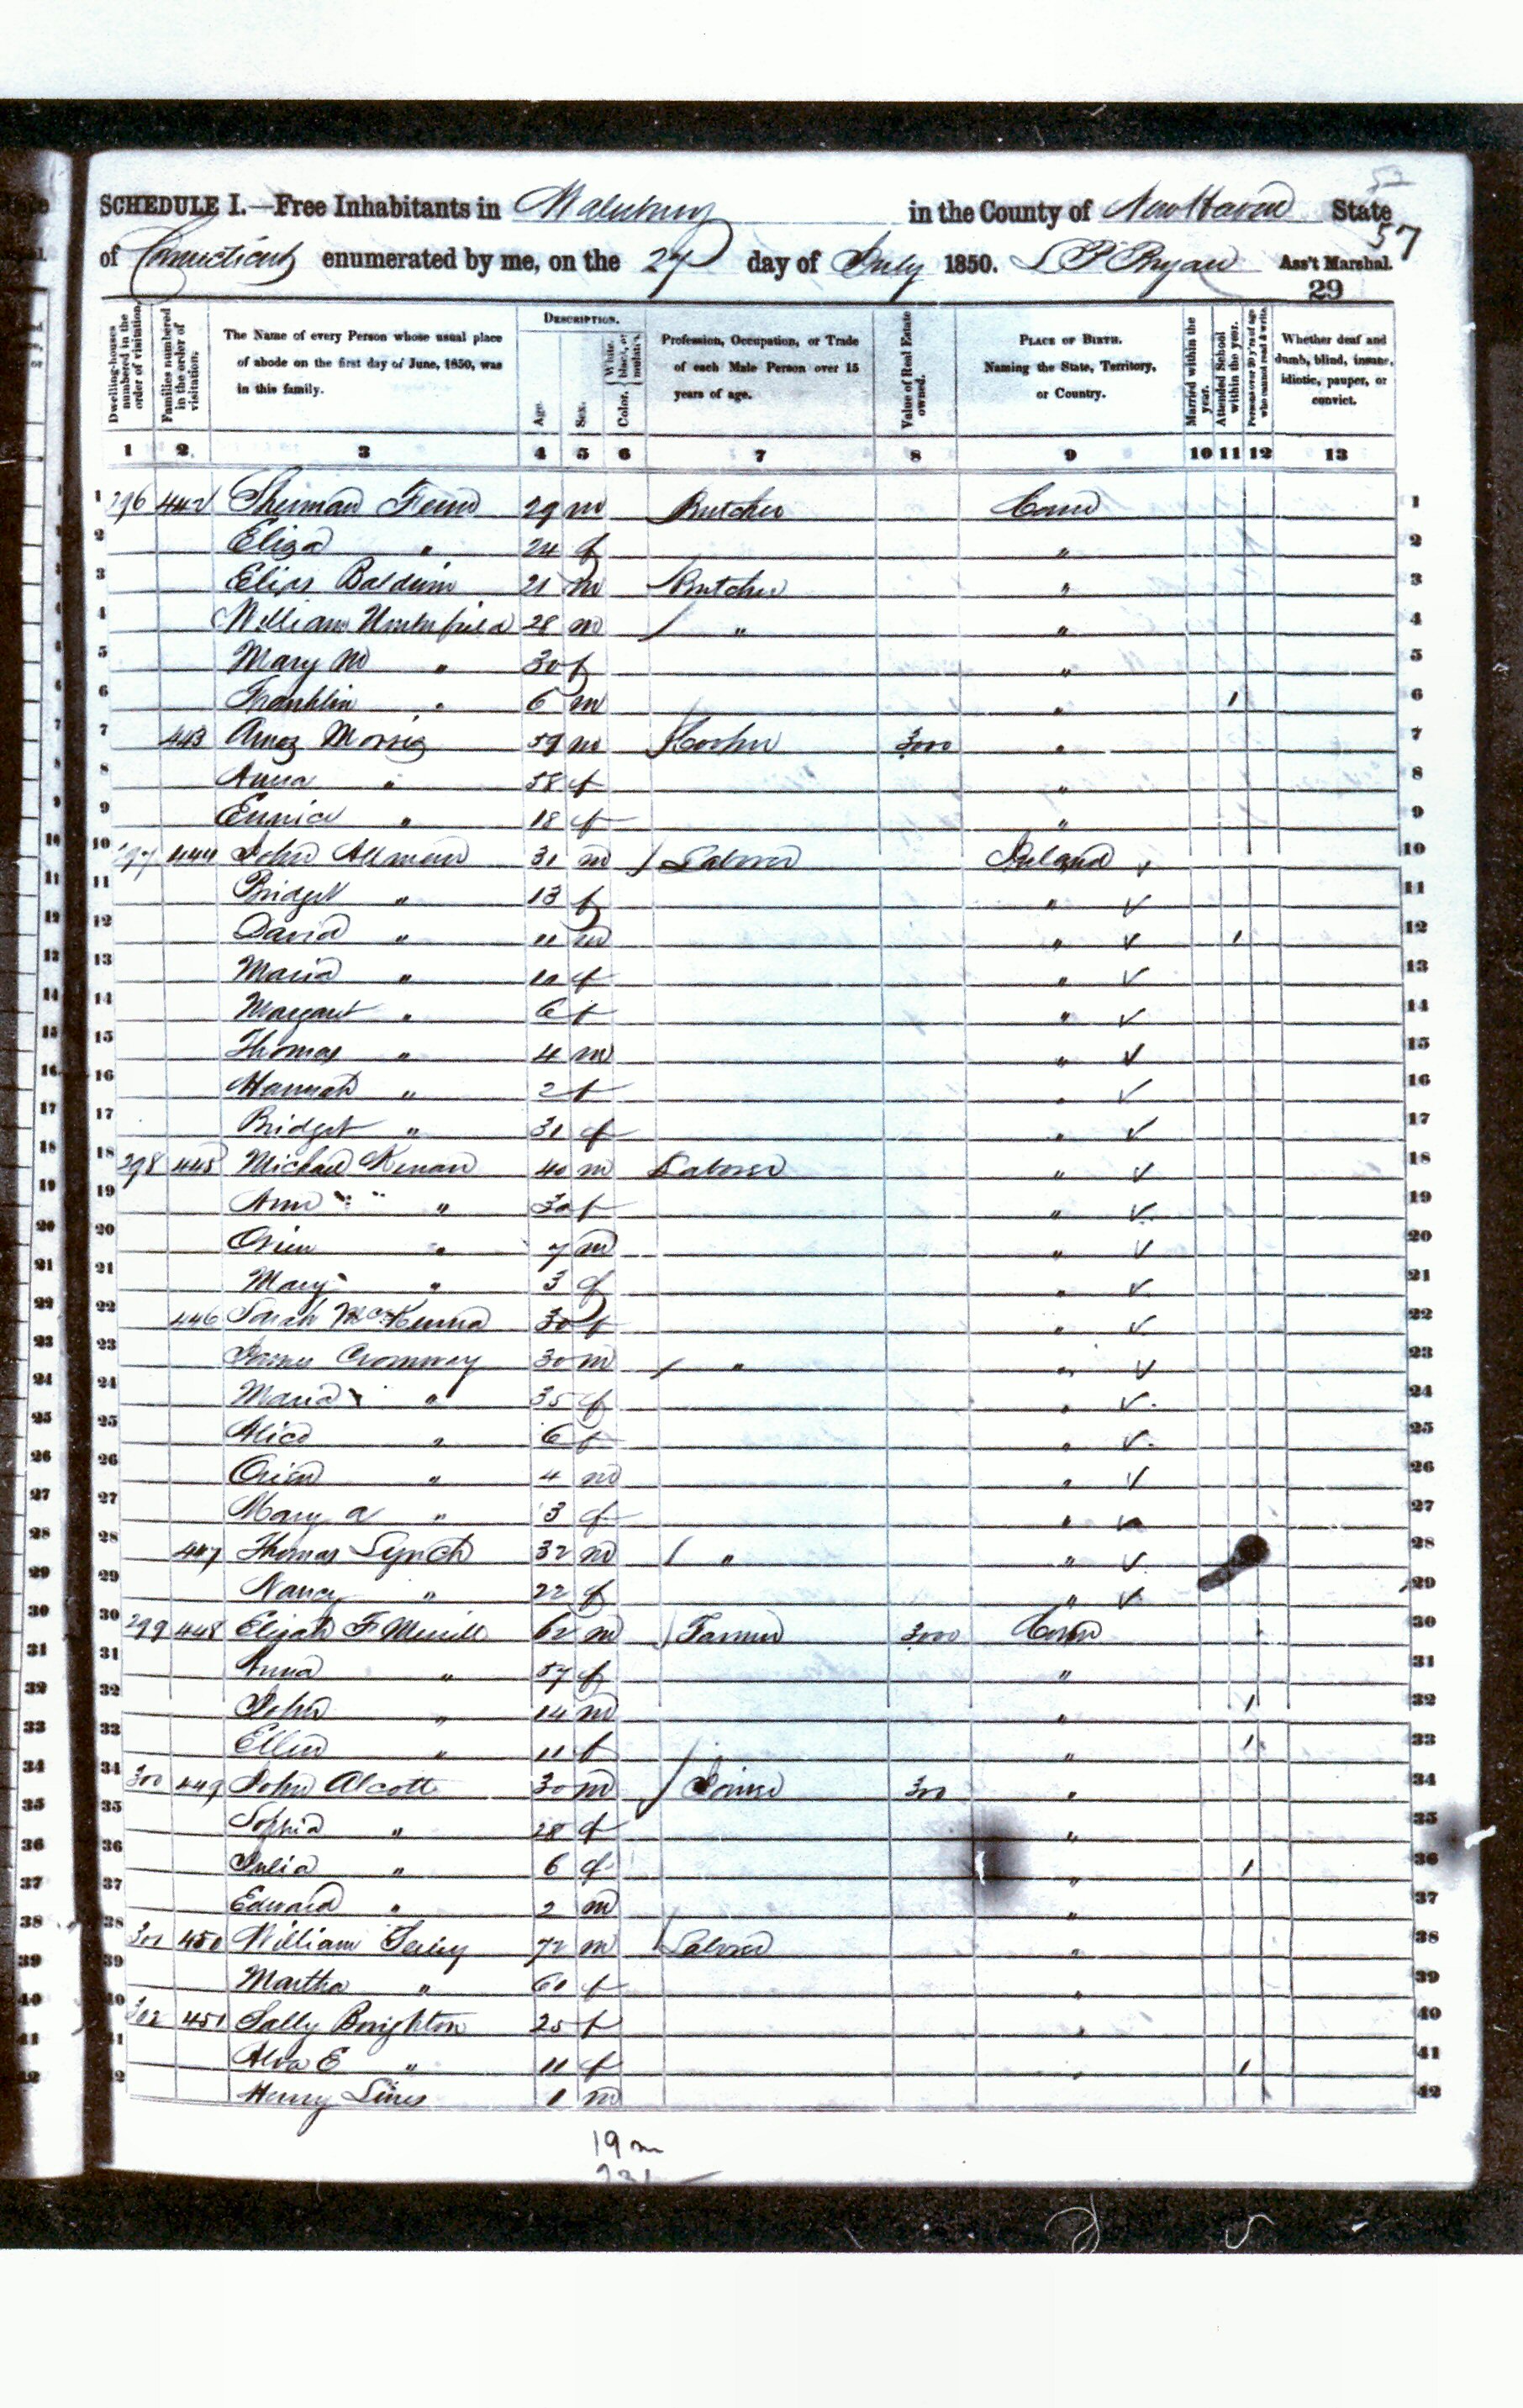 57
SCHEDULE I.—Free Inhabitants in Waterbury in the County of New Haven State
of Connecticut enumerated by me, on the 27 day of July 1850. S P Bryan Ass't Marshal.
29
Dwelling-houses numbered in the order of visitation.
Families numbered in the order of visitation.
The Name of every Person whose usual place of abode on the first day of June, 1850, was in this family.
DESCRIPTION.
Age.
Sex.
Color. { White, black, or mulatto.
Profession, Occupation, or Trade of each Male Person over 15 years of age.
Value of Real Estate owned.
PLACE OF BIRTH. Naming the State, Territory, or Country.
Married within the year.
Attended School within the year.
Persons over 20 y'rs of age who cannot read & write.
Whether deaf and dumb, blind, insane, idiotic, pauper, or convict.
1 2 3 4 5 6 7 8 9 10 11 12 13
1 296 442 Sherman 29 m Butcher Conn 1
2 Eliza " 24 f " 2
3 Elias Baldwin 21 m Butcher " 3
4 William 28 m " " 4
5 Mary M " 30 f " 5
6 Franklin " 6 m " 1 6
7 443 Amos Morris 59 m 3000 " 7
8 Anna " 58 f " 8
9 Eunice " 18 f " 9
10 297 444 John Allman 31 m Laborer Ireland 10
11 Bridget " 13 f " 11
12 David " 11 m " 1 12
13 Maria " 10 f " 13
14 Margaret " 6 f " 14
15 Thomas " 4 m " 15
16 Hannah " 2 f " 16
17 Bridget " 31 f " 17
18 298 445 Michael Kenan 40 m Laborer " 18
19 Ann " 30 f " 19
20 " 7 m " 20
21 Mary " 3 f " 21
22 446 Sarah McKenna 30 f " 22
23 James 30 m " " 23
24 Maria " 35 f " 24
25 Alice " 6 f " 25
26 " 4 m " 26
27 Mary A " 3 f " 27
28 447 Thomas Lynch 32 m " " 28
29 Nancy " 22 f " 29
30 299 448 Elijah F Merrill 62 m Farmer 3000 Conn 30
31 Anna " 57 f " 31
32 John " 14 m " 1 32
33 Ellen " 11 f " 1 33
34 300 449 John Alcott 30 m Joiner 300 " 34
35 Sophia " 28 f " 35
36 Julia " 6 f " 1 36
37 Edward " 2 m " 37
38 301 450 William 72 m Laborer " 38
39 Martha " 60 f " 39
40 302 451 Sally Boughton 25 f " 40
41 Alva E " 11 f " 1 41
42 Henry Lines 1 m 42
19 m